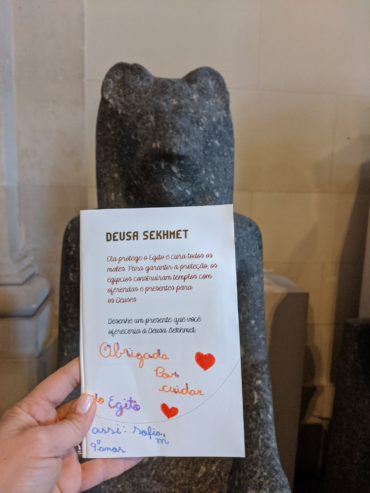 DEUSA SEKHMET
Ela protege o Egito e cura todos os
males. Para garantir a proteção, os
egípcios construíram templos com
oferendas e presentes para
os Deuses.
Desenhe um presente que você
ofereceria a Deusa Sekhmet.
Obrigada
Por
cuidar
do Egito
assi: Sofia m
9º anos